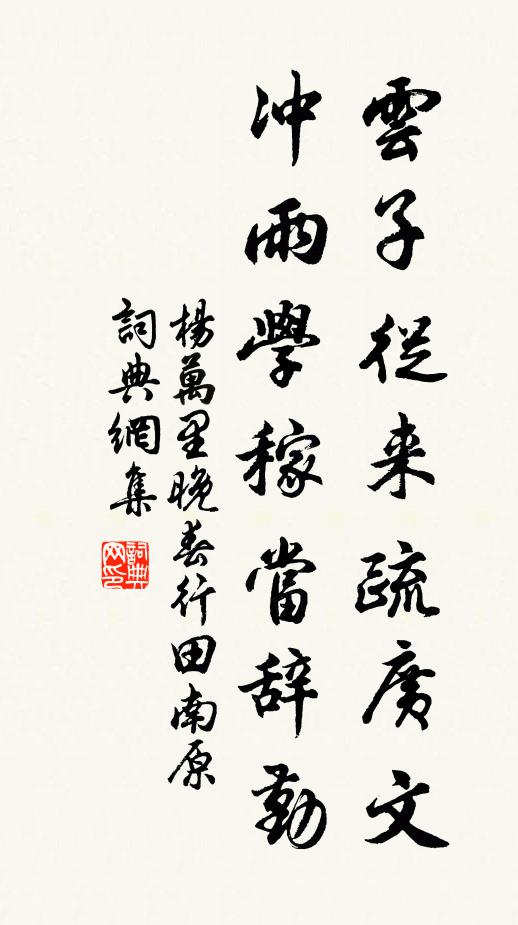 雲子從来疏廣文
冲雨學稼當辞勤
楊萬里晚春行田南原
詞典網集
詞典網印